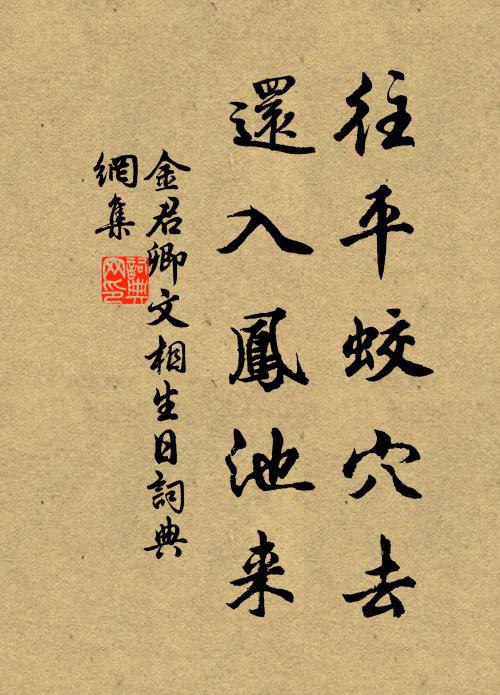 往平蛟穴去
還入鳳池来
金君卿文相生日詞典
網集
詞典網印